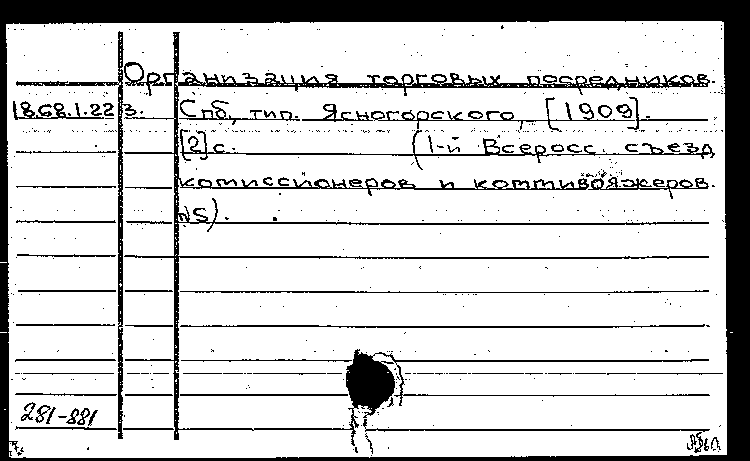 Организация торговых посредников.
18.68.1.223. Спб, тип. Ясногорского, [1909].
[2]с. (1-й Всеросс. съезд
комиссионеров и коммивояжеров.
№5).
281-881